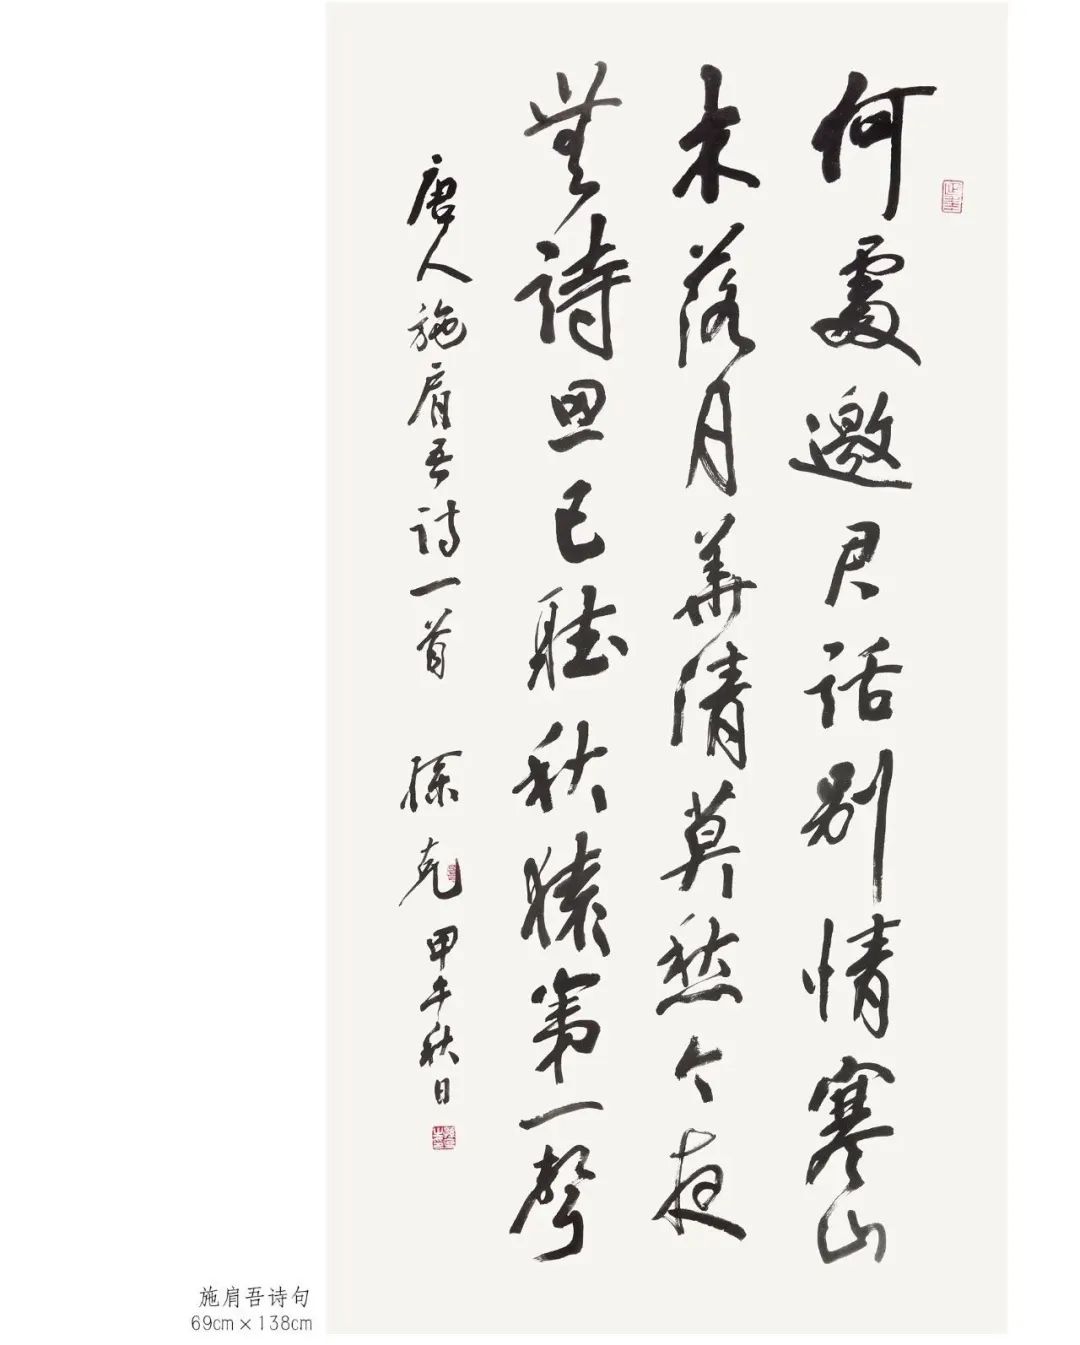 何處邀君話別情寒山
木落月華清莫愁今夜
無詩思已聽秋猿第一聲
唐人施肩吾詩一首 孫克 甲午秋日
施肩吾诗句
69cm×138cm